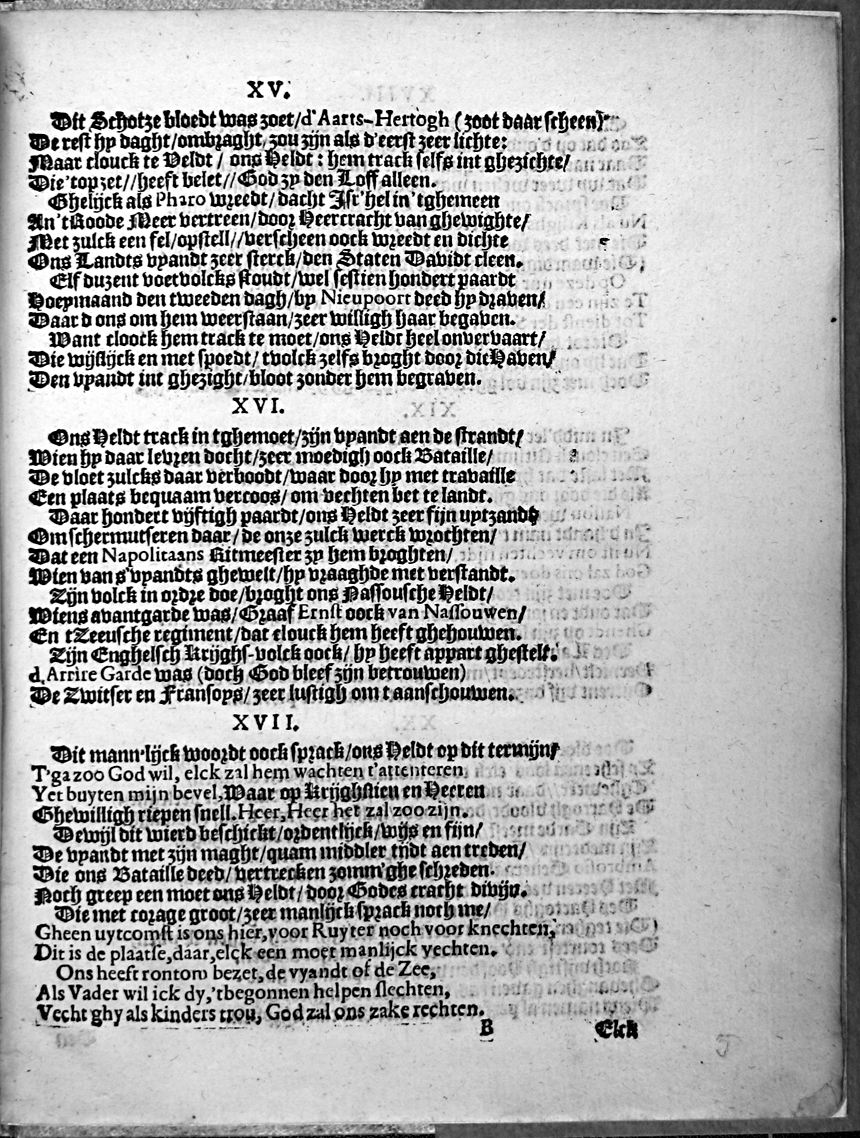 XV.
Dit Schotze bloedt was zoet/d'Aarts-Hertogh (zoot daar scheen)
De rest hy daght/ombraght, zou zijn als d'eerst zeer lichte:
Maar clouck te Veldt / ons Heldt : hem track selfs int ghezichte/
Die'top zet//heeft belet//God zy den Loff alleen.
Ghelijck als Pharo wreedt/dacht Isr'hel in'tghemeen
An't Roode Meer vertreen/door Heercracht van ghewighte/
Met zulck een fel/opstell//verscheen oock wreedt en dichte
Ons Landts vyandt zeer sterck/den Staten Davidt cleen.
Elf duzent voetvolcks stoudt/wel sestien hondert paardt
Hoeymaand den tweeden dagh/by Nieupoort deed hy draven/
Daar d ons om hem weerstaan/zeer willigh haar begaven.
Want cloock hem track te moet/ons Heldt heel onvervaart/
Die wijslijck en met spoedt/ tvolck zelfs broght door die Haven/
Den vyandt int ghezight/bloot zonder hem begraven.
XVI.
Ons Heldt track in tghemoet/zijn vyandt aen de strandt/
Wien hy daar levren docht/zeer moedigh oock Bataille/
De vloet zulcks daar verboodt/waar door hy met travaille
Een plaats bequaam vercoos/ om vechten bet te landt.
Daar hondert vijftigh paardt/ons Heldt zeer fijn uytzandt
Om schermutseren daar/de onze zulck werck wrochten/
Dat een Napolitaans Ritmeester zy hem broghten/
Wien van s'vyandts ghewelt/hy vraaghde met verstandt.
Zijn volck in ordre doe/broght ons Nassousche Heldt/
Wiens avantgarde was/Graaf Ernst oock van Nassouwen/
En tZeeusche regiment/dat clouck hem heeft ghehouwen.
Zijn Enghelsch Krijghs-volck oock/ hy heeft appart ghestelt.
d,Arrire Garde was (doch God bleef zijn betrouwen)
De Zwitser en Fransoys/zeer lustigh om t aanschouwen.
XVII.
Dit mann'lijck woordt oock sprack/ons Heldt op dit termijn/
T'ga zoo God wil, elck zal hem wachten t'attenteren
Yet buyten mijn bevel, Waar op Krijghslien en Heeren
Ghewilligh riepen snell. Heer, Heer het zal zoo zijn.
Dewijl dit wierd beschickt/ordentlijck/wijs en fijn/
De vyandt met zijn maght/quam middler tijdt aen treden/
Die ons Bataille deed/vertrecken zomm'ghe schreden.
Noch greep een moet ons Heldt/door Godes cracht divijn.
Die met corage groot/zeer manlijck sprack noch me/
Gheen uytcomst is ons hier, voor Ruyter noch voor knechten,
Dit is de plaatse, daar, elck een moet manlijck vechten.
Ons heeft rontom bezet, de vyandt of de Zee,
Als Vader wil ick dy,'tbegonnen helpen slechten,
Vecht ghy als kinders trou, God zal ons zake rechten.
B Elck
5